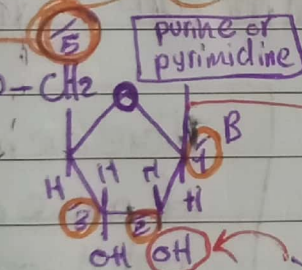 5
purine or
pyrimidine
O-CH2
O
B
H H H 1
H
3 2
OH OH